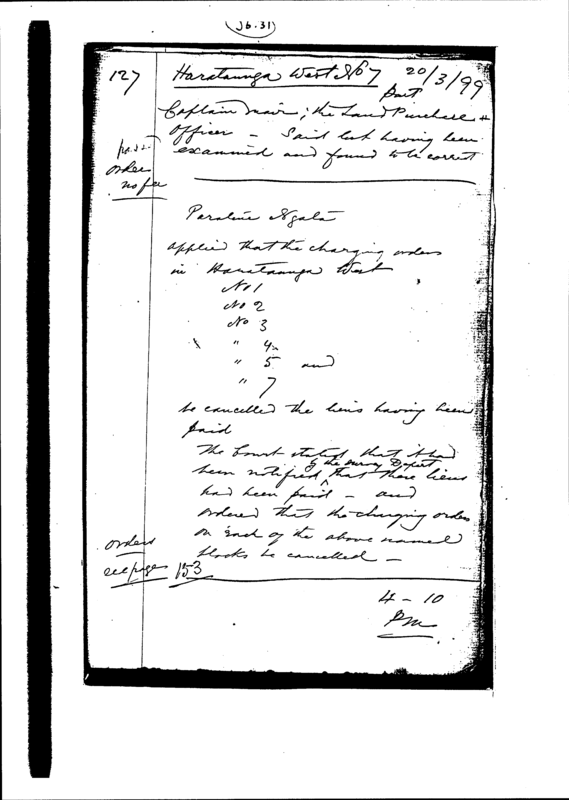 Jb.31
127 Harataunga West No 7 20/3/99
part
Captain Mair; the Land Purchase
Officer – Said list having been
examined and found to be correct
orders
no fee
Ngata
applied that the charging orders
in Harataunga West
No 1
No 2
No 3
" 4
" 5 and
" 7
be cancelled the liens having been
paid
The Court stated that it had
by the Survey Depart
been notified that these liens
had been paid – and
ordered that the charging orders
on each of the above named
blocks be cancelled –
orders
see page 153
4 – 10
PM